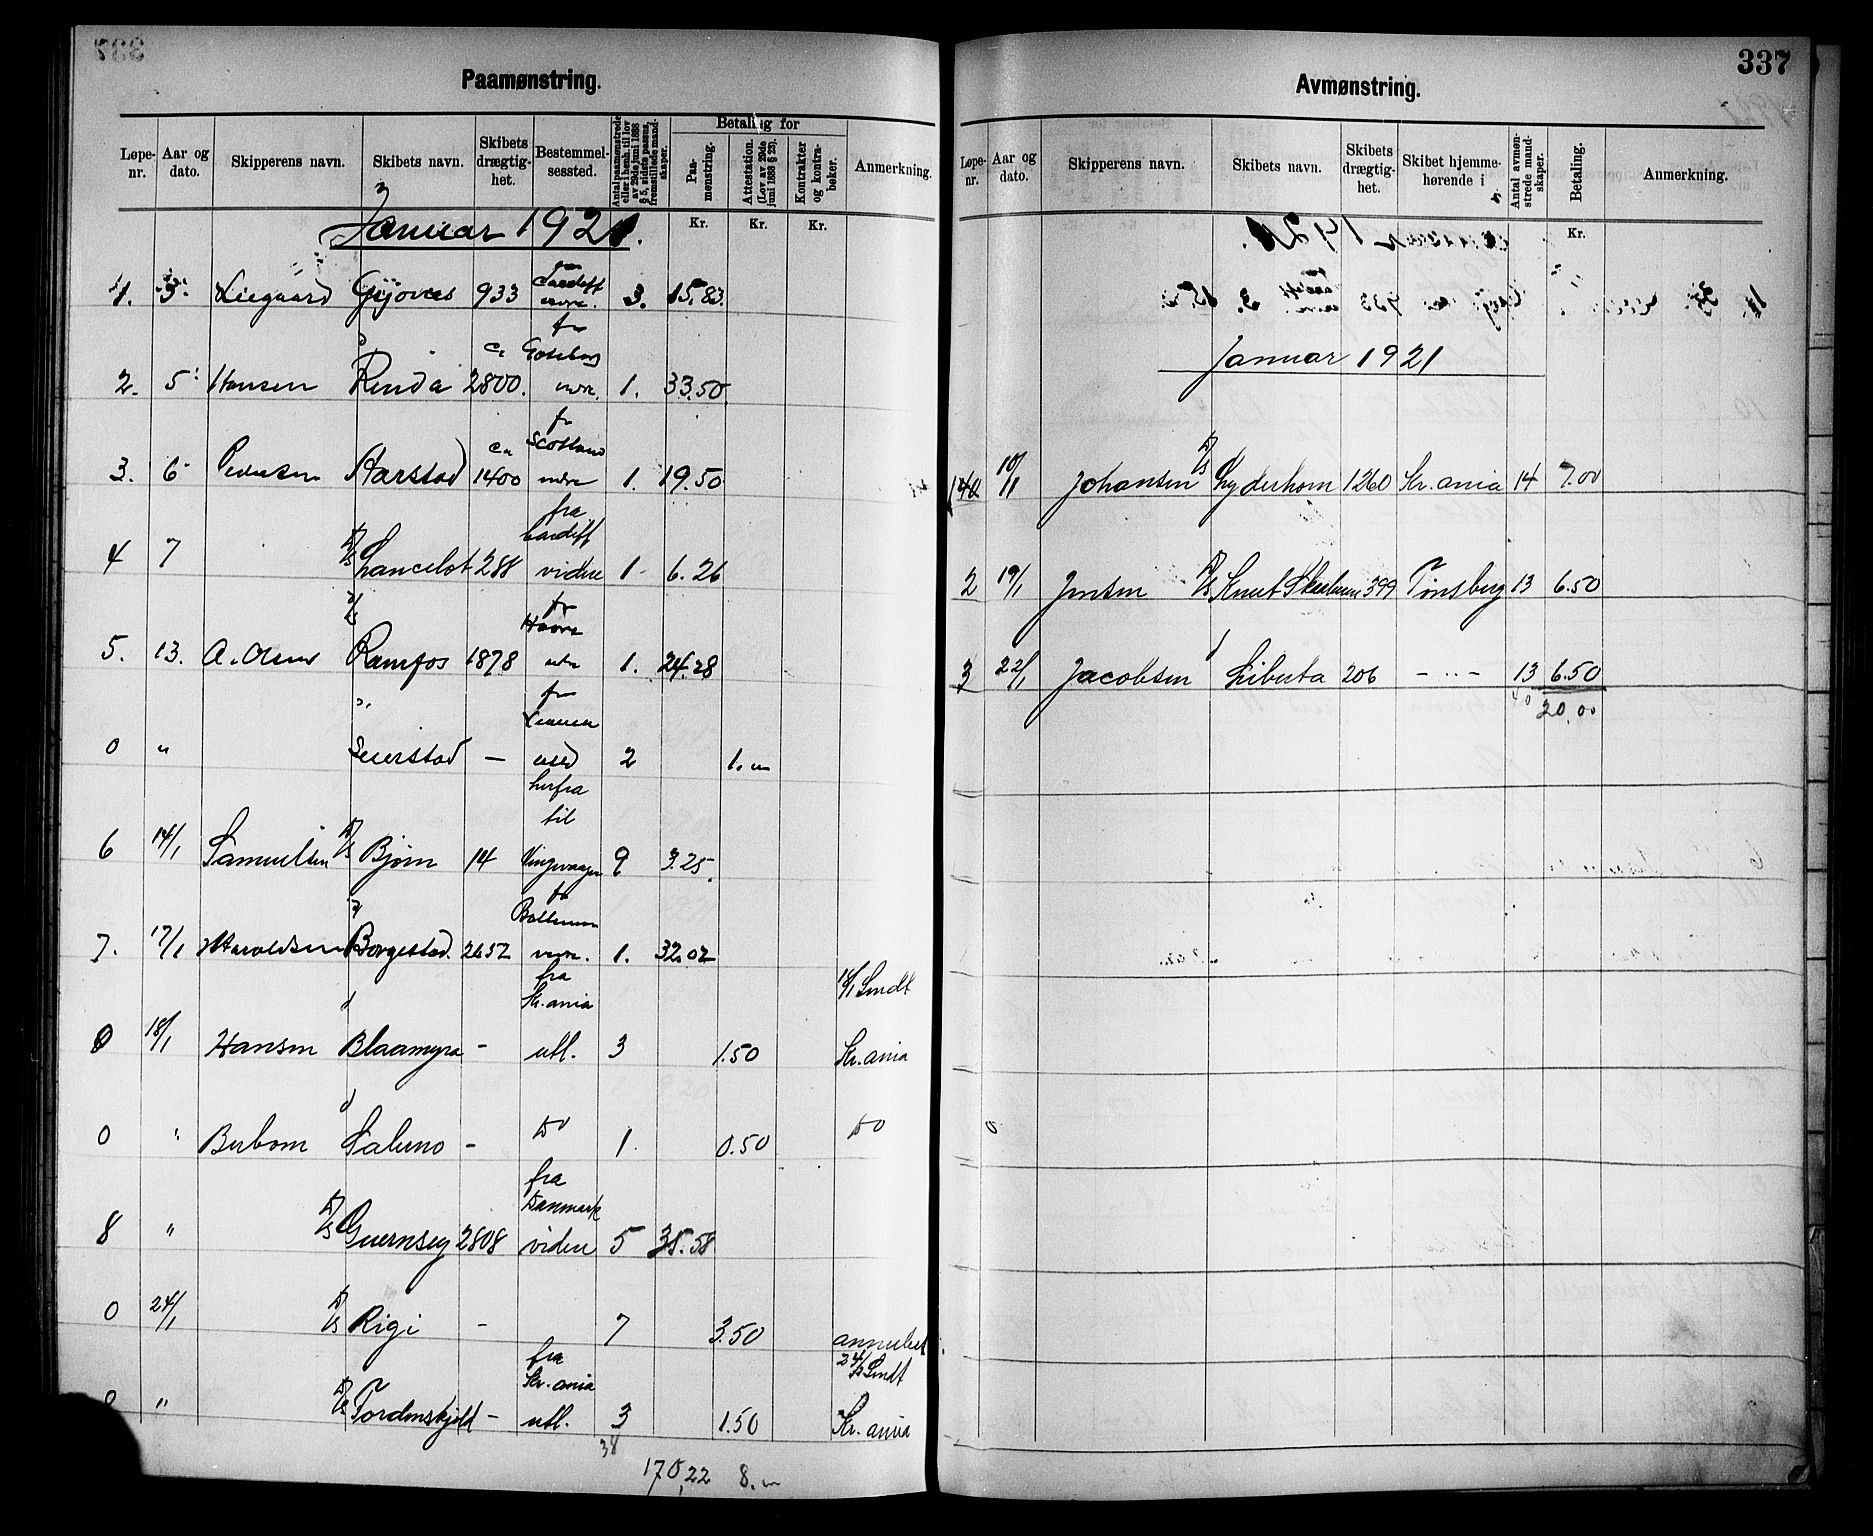 Paamønstring.
Løpe-nr. Aar og dato. Skipperens navn. Skibets navn. Skibets drægtighet. Bestemmelsessted. Antal paamønstrede eller i henh. til lov av 29de juni 1888 § 5, sidste passus, fremstillede mandskaper. Betaling for Paamønstring. Attestation. (Lov av 29de juni 1888 § 29). Kontrakter og kontrabøker. Anmerkning.
Januar 1921. Kr. Kr. Kr.
1. 3. 933 Cardiff 3. 15.83
fra Goteborg
2. 5 Hansen Rinda ca 2800. 1. 33.50
fra Scotland
3. 6 Pedersen Aarstad ca 1400 1. 19.50
fra Cardiff
4 7 D/S Lancelot 288 videre 1 6.26
fra Havre
5. 13. A. Olsen Ramfos 1878 1. 24.28
0 " Seierstad — 2 1.
herfra til
6 14/1 Samuelsen D/S Bjørn 14 9 3.25
7. 17/1 Haraldsen Borgestad 2657 1. 32.02
fra Kr.ania
0 18/1 Hansen Blaamyra - utl. 3 1.50 18/1 Sendt Kr.ania
0 " Saluno - Do 1 0.50 Do
fra Danmark
8 " D/S Guernsey 2808 videre 5 35.58
0 24/1 D/S Rigi - 7 3.50 annulert
fra Kr.ania
" D/S Tordenskjold - utl. 3 1.50 24/1 Sendt Kr.ania
38 170,22 8.
337
Avmønstring.
Løpe-nr. Aar og dato. Skipperens navn. Skibets navn. Skibets drægtighet. Skibet hjemmehørende i Antal avmønstrede mandskaper. Betaling. Anmerkning.
Kr.
Januar 1921
10/1 Johansen D/S Lyderhorn 1260 Kr.ania 14 7.00
2 19/1 Jensen D/S Knut Skaaluren 399 Tønsberg 13 6.50
3 22/1 Jacobsen Liberta 206 - " - 13 6.50
40 20.00